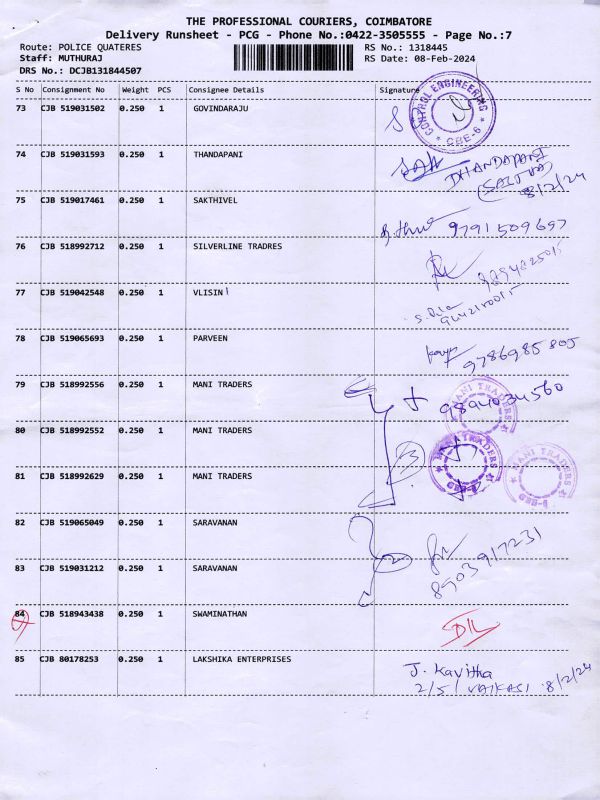 THE PROFESSIONAL COURIERS, COIMBATORE
Delivery Runsheet - PCG - Phone No.:0422-3505555 - Page No.:7
Route: POLICE QUATERES
RS No.: 1318445
Staff: MUTHURAJ
RS Date: 08-Feb-2024
DRS No.: DCJB131844507
S No Consignment No Weight PCS Consignee Details Signature
73 CJB 519031502 0.250 1 GOVINDARAJU
CONTROL ENGINEERING
CBE-6
74 CJB 519031593 0.250 1 THANDAPANI
DHANDAPANI
8/2/24
75 CJB 519017461 0.250 1 SAKTHIVEL
9791509697
76 CJB 518992712 0.250 1 SILVERLINE TRADRES
77 CJB 519042548 0.250 1 VLISIN
78 CJB 519065693 0.250 1 PARVEEN
9786985805
79 CJB 518992556 0.250 1 MANI TRADERS
9894034560
MANI TRADERS
80 CJB 518992552 0.250 1 MANI TRADERS
3
MANI TRADERS
MANI TRADERS
81 CJB 518992629 0.250 1 MANI TRADERS
82 CJB 519065049 0.250 1 SARAVANAN
8903917231
83 CJB 519031212 0.250 1 SARAVANAN
2
84 CJB 518943438 0.250 1 SWAMINATHAN
85 CJB 80178253 0.250 1 LAKSHIKA ENTERPRISES
J. Kavitha
2/5/ VAIKASI 8/2/24